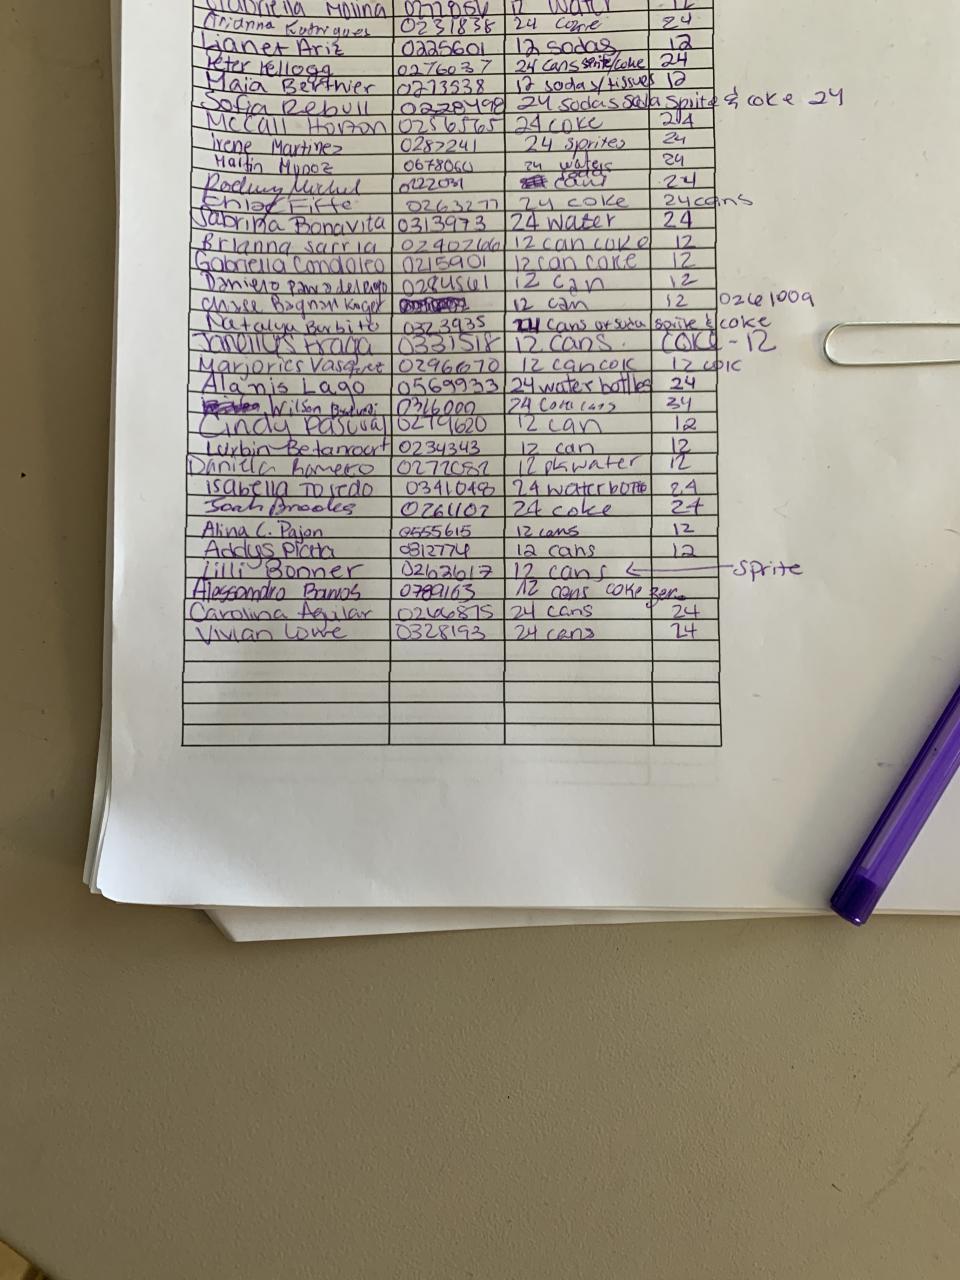 Gabriella Molina 12 Water 12
Arianna Rodrigues 0231838 24 coke 24
Lianet Ariz 0225601 12 sodas 12
Peter Kellogg 0276037 24 cans sprite/coke 24
Maia Berthier 0273538 12 sodas/tissues 12
Sofia Rebull 0228498 24 sodas soda sprite & coke 24
McCall Horton 0256565 24 coke 24
Irene Martinez 0287241 24 sprites 24
Martin Munoz 0678060 24 waters 24
0222031 soda cans 24
Chloe Fiffe 0263277 24 coke 24 cans
Sabrina Bonavita 0313973 24 water 24
Brianna Sarria 0240266 12 can coke 12
Gabriella Condoleo 0215901 12 can coke 12
Daniero 0284561 12 can 12
12 can 12 0261009
Natalya Barbito 0323935 24 cans of soda sprite & coke
Janellys Fraga 0331518 12 cans. coke - 12
Marjorics Vasquez 0296670 12 can cok 12 cok
Alanis Lago 0569933 24 water bottles 24
Wilson 0316000 24 coke cans 34
Cindy Pascual 0279620 12 can 12
Lurbin Betancourt 0234343 12 can 12
Daniella Romero 0272082 12 pk water 12
Isabella Toledo 0341048 24 water bottle 24
Brooks 0261102 24 coke 24
Alina C. Pajon 0555615 12 cans 12
Addys Pieta 0312774 12 cans 12
Lilli Bonner 0263617 12 cans ← sprite
Alessandro Barrios 0789163 12 cans coke zero
Carolina Aguilar 0266875 24 cans 24
Vivian Lowe 0328193 24 cans 24